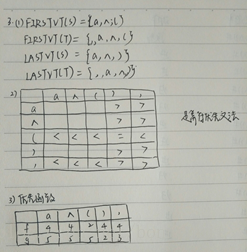 3.(1) FIRSTVT(S) = {a, ∧, (}
FIRSTVT(T) = {, , a, ∧, (}
LASTVT(S) = {a, ∧, )}
LASTVT(T) = {, , a, ∧, )}
2)
a ∧ ( ) ,
a > >
∧ > >
( < < < = <
) > >
, < < < > >
3)
a ∧ ( ) ,
f 4 4 2 4 4
g 5 5 5 2 3